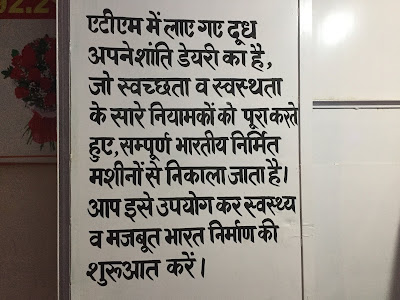 02.2
एटीएम में लाए गए दूध
अपनेशांति डेयरी का है,
जो स्वच्छता व स्वस्थता
के सारे नियामकों को पूरा करते
हुए, सम्पूर्ण भारतीय निर्मित
मशीनों से निकाला जाता है।
आप इसे उपयोग कर स्वस्थ्य
व मजबूत भारत निर्माण की
शुरूआत करें।